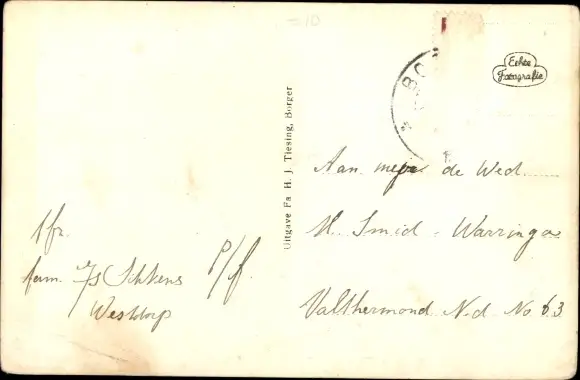 =10
BO
Echte
Fotografie
Uitgave Fa H. J. Tiesing, Borger
Aan mej. de Wed.
H. Smid - Warringa
Valthermond N.d. No 63
Afz.
fam. Js
Westdorp
P/f.